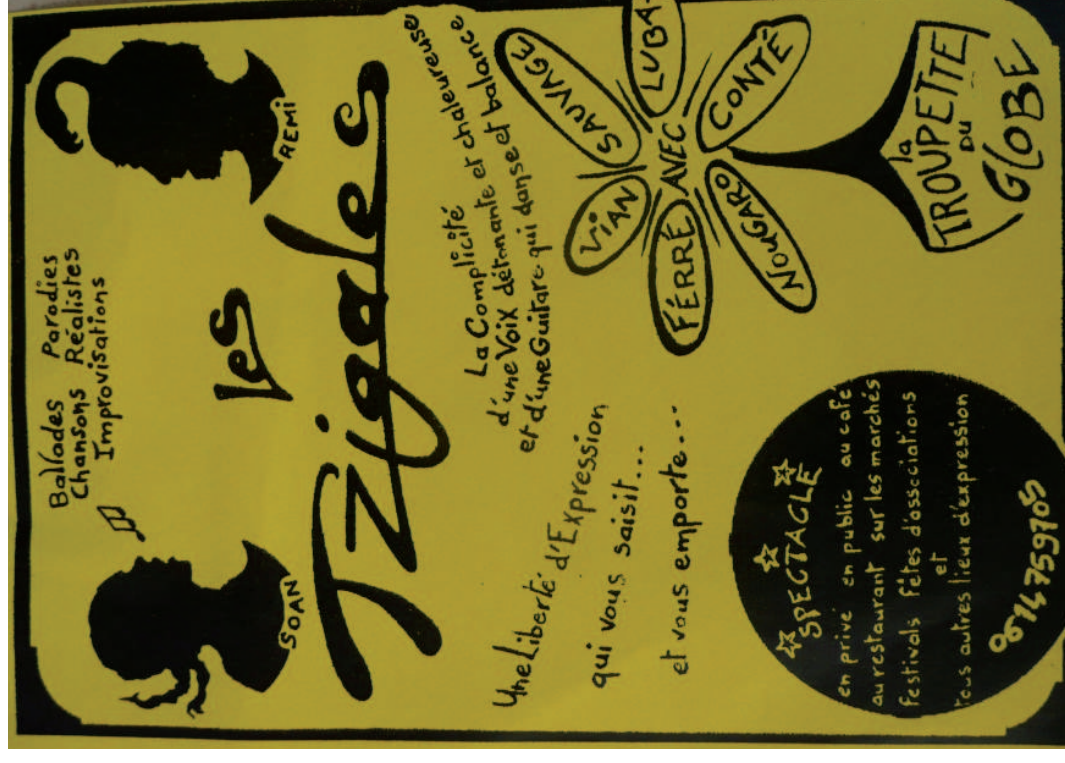 Ballades Parodies
Chansons Réalistes
Improvisations
SOAN
REMI
les
Tzigales
La Complicité
d'une Voix détonante et chaleureuse
et d'une Guitare qui danse et balance
Une Liberté d'Expression
qui vous saisit...
et vous emporte...
AVEC
VIAN
SAUVAGE
LUBA-
CONTÉ
NOUGARO
FÉRRÉ
la
TROUPETTE
DU
GLOBE
SPECTACLE
en privé en public au café
au restaurant sur les marchés
festivals fêtes d'associations
et
tous autres lieux d'expression
0614759705